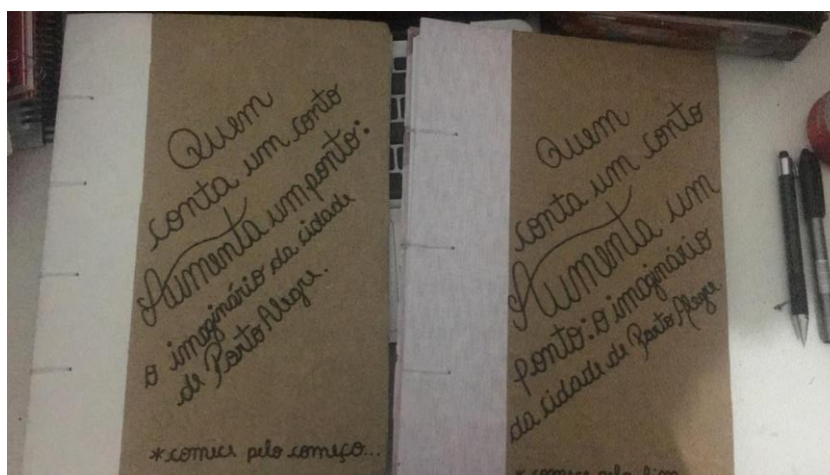 Quem
conta um conto
Aumenta um ponto:
o imaginário da cidade
de Porto Alegre.
*comece pelo começo...
Quem
conta um conto
Aumenta um
ponto: o imaginário
da cidade de Porto Alegre
* comece pelo